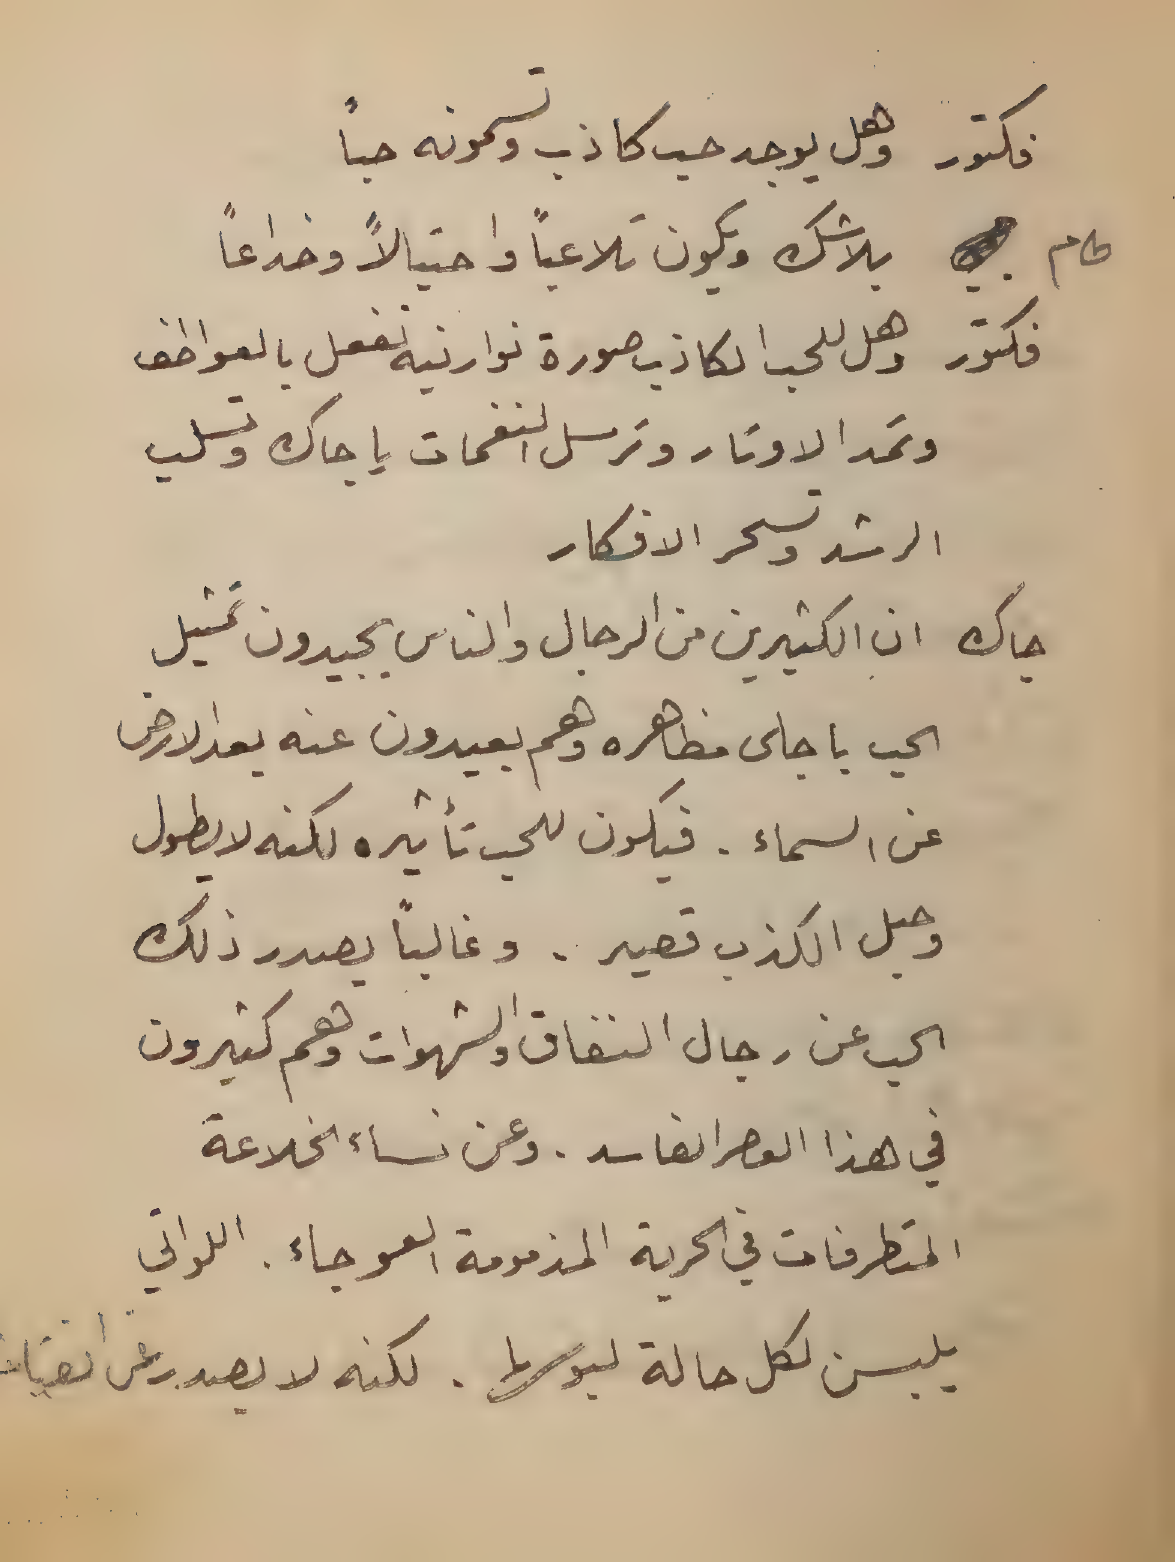 فكتور وهل يوجد حب كاذب وتسمونه حباً
بلاشك ويكون تلاعباً واحتيالاً وخداعاً
فكتور وهل للحب الكاذب صورة نوارنيه تفعل بالعواطف
وتمد الاوتار وترسل النغمات يا جاك وتسلب
الرشد وتسحر الافكار
جاك ان الكثيرين من الرجال والناس يجيدون تمثيل
الحب باجلى مظاهره وهم بعيدون عنه بعد الارض
عن السماء . فيكون للحب تأثيره لكنه لا يطول
وحبل الكذب قصير . وغالباً يصدر ذلك
الحب عن رجال النفاق والشهوات وهم كثيرون
في هذا العصر الفاسد . وعن نساء الخلاعة
المتطرفات في الحرية المذمومة العوجاء . اللواتي
يلبسن لكل حالة لبوسها . لكنه لا يصدر عن